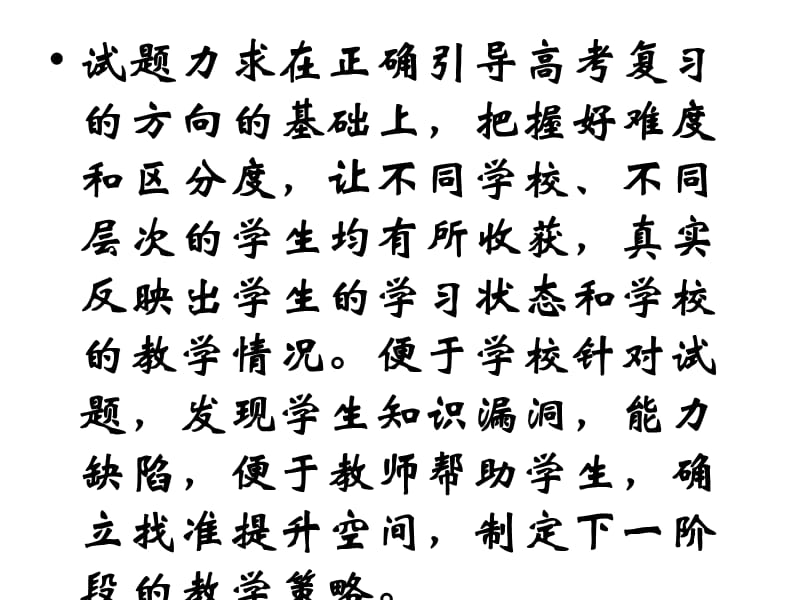 • 试题力求在正确引导高考复习
的方向的基础上，把握好难度
和区分度，让不同学校、不同
层次的学生均有所收获，真实
反映出学生的学习状态和学校
的教学情况。便于学校针对试
题，发现学生知识漏洞，能力
缺陷，便于教师帮助学生，确
立找准提升空间，制定下一阶
段的教学策略。